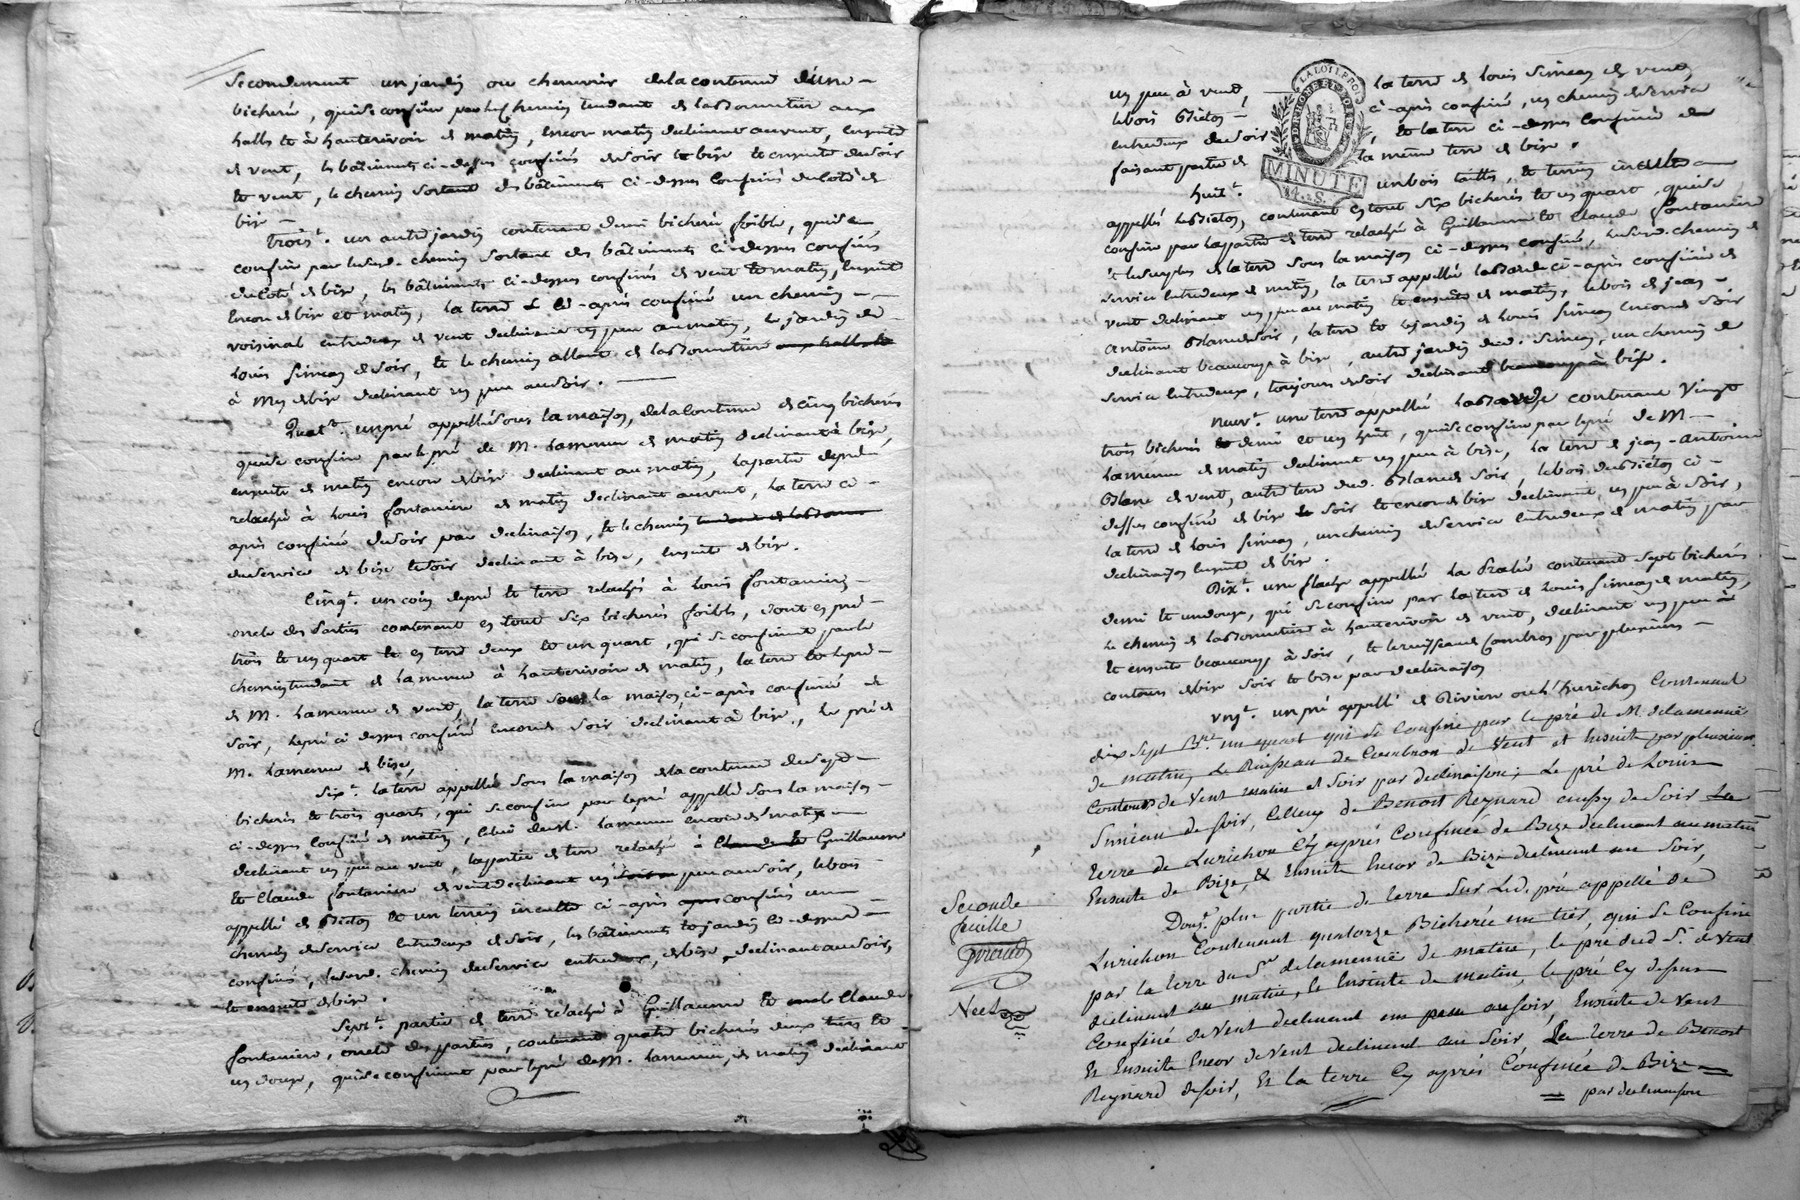 Secondement un jardin ou chenevier de la contenue d'une
bicherée, qui se confine par le chemin tendant de la Bonnetier aux
halls et à hauterivoir de matin, encor matin declinant au vent, ensuite
de vent, les bâtiments ci-dessus confinés de soir et bise et ensuite de soir
et vent, le chemin sortant des bâtiments ci-dessus confinés du coté de
bise
Trois.t un autre jardin contenant demi bicherée foible, qui se
confine par le susd. chemin sortant des bâtiments ci-dessus confinés
du coté de bise, les bâtiments ci-dessus confinés de vent et matin, ensuite
encor de bise et matin, la terre ci-après confinée un chemin
voisinal entredeux de vent declinant un peu au matin, le jardin de
Louis Simean de soir, et le chemin allant de la Bonnetier aux halls et
à Mey de bise declinant un peu au soir.
Quat.t un pré appellé sous la maison, de la contenue de cinq bicherées
qui se confine par le pré de M. Lamenue de matin declinant à bise,
ensuite de matin encor de bise declinant au matin, la partie de pré
relachée à Louis fontaniere de matin declinant au vent, la terre ci-
après confinée de soir par declinaison, et le chemin tendant de la Bonne
de service de bise et soir declinant à bise, ensuite de bise.
Cinq.t un coin de pré et terre relachés à Louis fontaniere
oncle des parties contenant en tout six bicherées foibles, dont en pré
trois et un quart et en terre deux et un quart, qui se confinent par le
chemin tendant de Lamenue à hauterivoir de matin, la terre et le pré
de M. Lamenue de vent, la terre sous la maison ci-après confinée de
soir, le pré ci dessus confiné encor de soir declinant à bise, le pré de
M. Lamenue de bise,
Six.t la terre appellée sous la maison de la contenue de sept
bicherées et trois quarts, qui se confine par le pré appellé sous la maison
ci-dessus confiné de matin, celui de M. Lamenue encor de matin
declinant un peu au vent, la partie de terre relachée à Claude et Guillaume
et Claude fontaniere de vent declinant un peu au soir, le bois
appellé de Bietos et un terrein inculte ci-après confinés un
chemin de service entredeux de soir, les bâtiments et jardin ci-dessus
confinés, le susd. chemin de service entredeux, de bise declinant au soir,
et ensuite de bise.
Sept.t partie de terre relachée à Guillaume et Claude
fontaniere, oncle des parties, contenant quatre bicherées deux tiers et
un douze, qui se confinent par le pré de M. Lamenue, de matin declinant
un peu à vent, la terre de Louis Simean de vent,
le bois Bietos ci-après confiné, un chemin de service
entredeux de soir, et la terre ci-dessus confinée de
faisant partie de la même terre de bise.
LA LOI LE ROI
MINUTE
14. s.
huit.t un bois taillis, et terrein inculte
appellés le Bietos, contenant en tout six bicherées et un quart, qui se
confine par la partie de terre relachée à Guillaume et Claude fontaniere
de la terre sous la maison ci-dessus confinée, le susd. chemin de
service entredeux de matin, la terre appellée la Barde ci-après confinée de
vent declinant un peu au matin et ensuite de matin, le bois de jean
antoine Blanc de soir, la terre et le jardin de Louis Simean encor de soir
declinant beaucoup à bise, autre jardin dud. Simean, un chemin de
service entredeux, toujours de soir declinant beaucoup à bise.
Neuv.t une terre appellée la Barde contenant vingt
trois bicherées et demi et un huit, qui se confine par le pré de M
Lamenue de matin declinant un peu à bise, la terre de jean-antoine
Blanc de vent, autre terre dud. Blanc de soir, le bois du Bietos ci-
dessus confiné de bise et soir et encor de bise declinant, un peu à soir,
la terre de Louis Simean, un chemin de service entredeux de matin par
declinaison ensuite de bise.
Dix.t une flache appellée la Pralié contenant sept bicherées
demi et un douze, qui se confine par la terre de Louis Simean de matin,
le chemin de la Bonnetier à hauterivoir de vent, declinant un peu à
et ensuite beaucoup à soir, et le ruisseau Combras par plusieurs
contours de bise soir et bise par declinaison
Unz.t un pré appellé de Riviere ou l'hurichon Contenant
dix sept B.rées un quart qui se Confine par le pré de M. delamenuë
de matin, Le Ruisseau de Courbran de Vent et Ensuite par plusieurs
Contours de Vent matin et Soir par declinaison; Le pré de Louis
Siméan de Soir, Celluy de Benoist Reynard aussy de Soir La
terre de Lurichon Cy après Confinée de Bize declinant au matin
Ensuite de Bize, & Ensuite Encor de Bize declinant au Soir,
Douz.t plus partie de terre Sur Lad. pré appellé de
Lurichon Contenant quatorze Bicherée un tier, qui se Confine
par la terre du S.r delamenuë de matin, le pré dud S.r de Vent
declinant au matin, & Ensuite de matin, le pré Cy dessus
Confiné de Vent declinant un peu au soir, Ensuite de Vent
Et Ensuite Encor de Vent declinant au Soir, La terre de Benoist
Reynard de Soir, Et la terre Cy après Confinée de Bize
par declinaison
Seconde
feuille